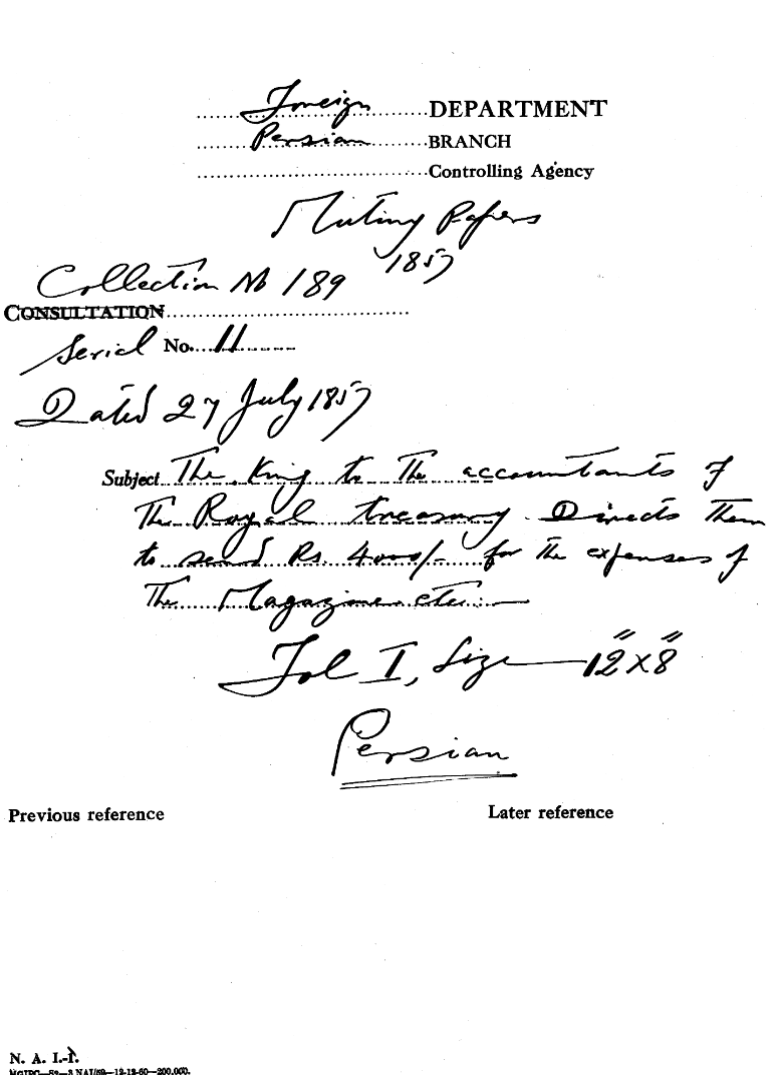 Foreign DEPARTMENT
Persian BRANCH
Controlling Agency
Mutiny Papers
1857
Collection No 189
CONSULTATION
Serial No. 11
Dated 27 July 1857
Subject The King to the accountants of
the Royal treasury. Directs them
to send Rs. 4000/- for the expenses of
the Magazine etc:—
Fol I, Size — 12" x 8"
Persian
Previous reference Later reference
N. A. I.-1.
MGIPC—S2—3 NAI/59—12-12-60—200,000.